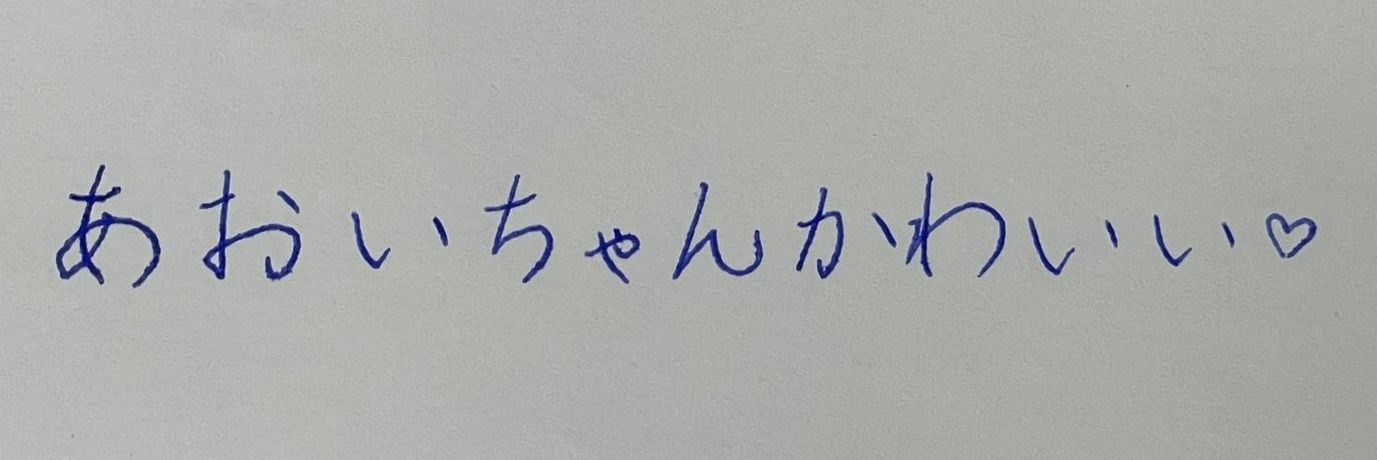 あおいちゃんかわいい♡